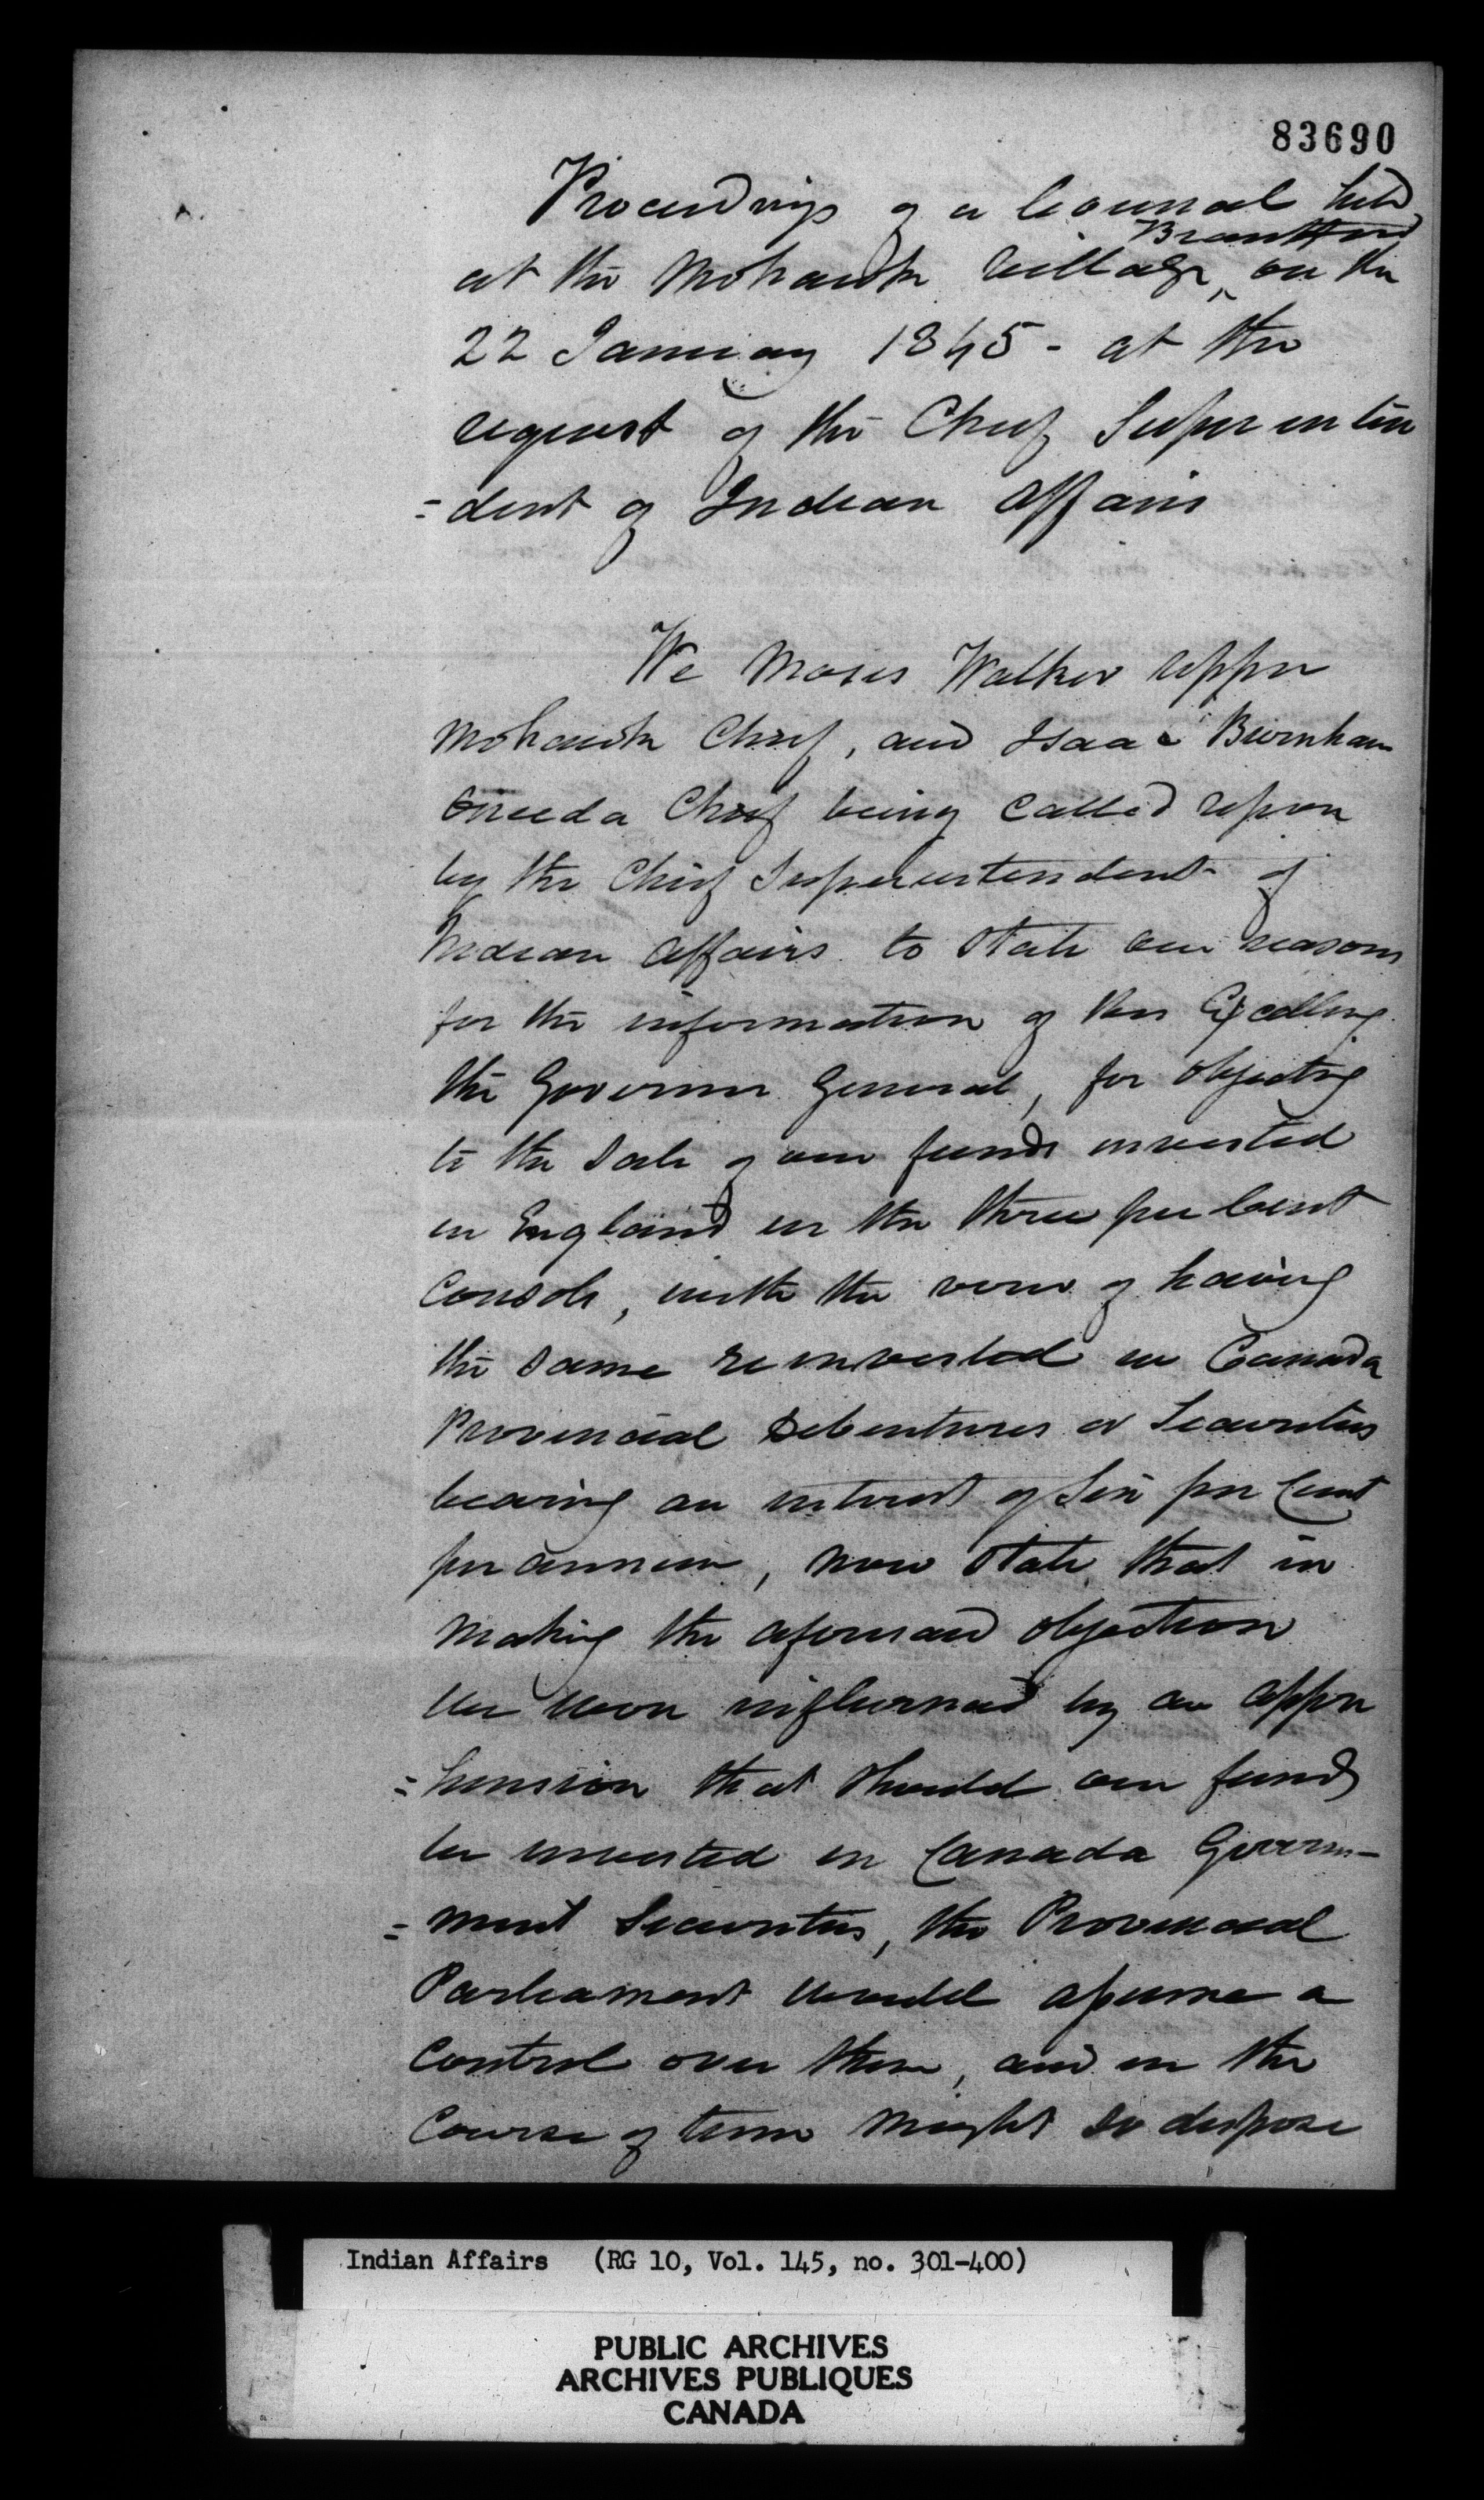 83690
Proceedings of a Council held
Brantford
at the Mohawk Village, on the
22 January 1845 - at the
request of the Chief Superinten
=dent of Indian Affairs
We Moses Walker upper
Mohawk Chief, and Isaac Burnham
Oneida Chief being called upon
by the Chief Superintendent of
Indian Affairs to state our reasons
for the information of His Excellency
the Governor General, for objecting
to the sale of our funds invested
in England in the three per Cent
Consols, with the view of having
the same reinvested in Canada
Provincial Debentures or Securities
bearing an interest of Six per Cent
per annum, now state, that in
making the aforesaid objection
we were influenced by an appre
=hension that should our funds
be invested in Canada Govern-
=ment Securities, the Provincial
Parliament would assume a
control over them, and in the
course of time might so dispose
Indian Affairs (RG 10, Vol. 145, no. 301-400)
PUBLIC ARCHIVES
ARCHIVES PUBLIQUES
CANADA